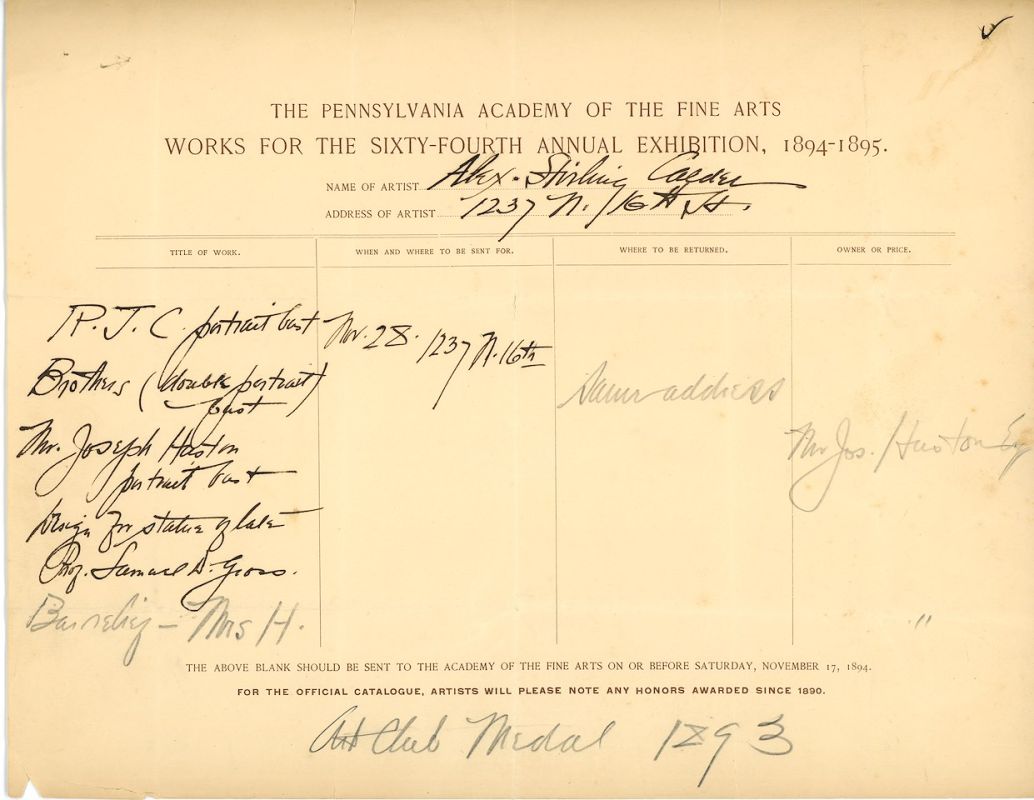 THE PENNSYLVANIA ACADEMY OF THE FINE ARTS
WORKS FOR THE SIXTY-FOURTH ANNUAL EXHIBITION, 1894-1895.
NAME OF ARTIST Alex. Stirling Calder
ADDRESS OF ARTIST 1237 N. 16th St.
TITLE OF WORK. WHEN AND WHERE TO BE SENT FOR. WHERE TO BE RETURNED. OWNER OR PRICE.
R. J. C. portrait bust Nov. 28. 1237 N. 16th
Brothers (double portrait)
bust
Same address
Mr. Joseph Huston
portrait bust
Mr Jos. Huston Esq
Design for statue of late
Prof. Samuel D. Gross.
Basrelief - Mrs H. "
THE ABOVE BLANK SHOULD BE SENT TO THE ACADEMY OF THE FINE ARTS ON OR BEFORE SATURDAY, NOVEMBER 17, 1894.
FOR THE OFFICIAL CATALOGUE, ARTISTS WILL PLEASE NOTE ANY HONORS AWARDED SINCE 1890.
Art Club Medal 1893